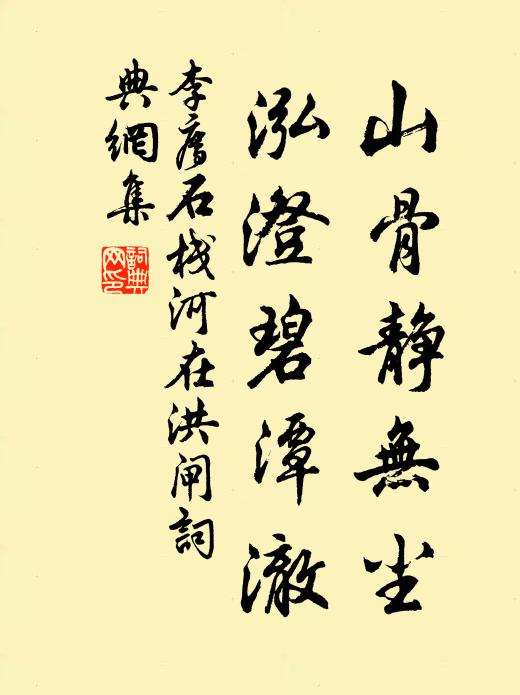 山骨静無尘
泓澄碧潭澈
李廌石栈河在洪闸詞
典網集
詞典網印